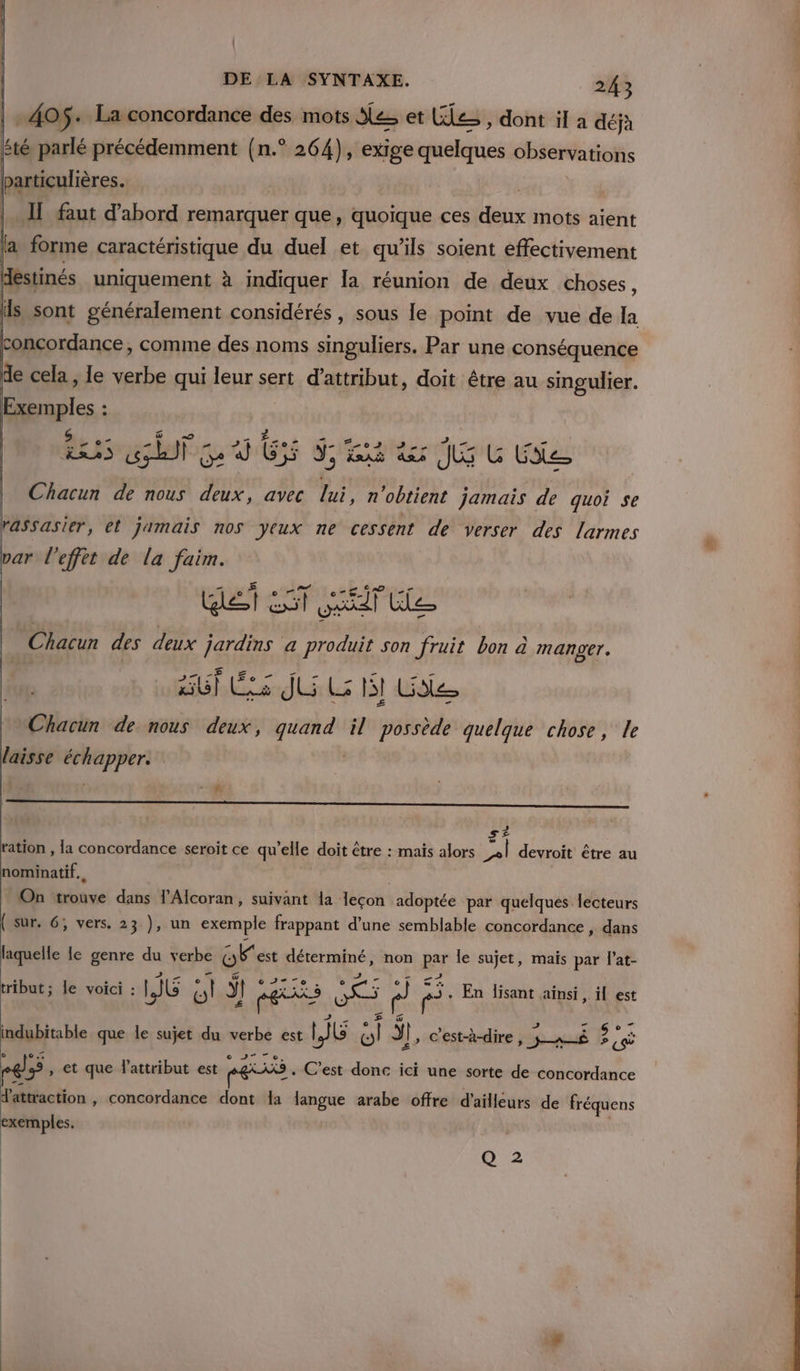 DE LA SYNTAXE. 243
405. La concordance des mots كلا et كلتا, dont il a déjà
été parlé précédemment (n.° 264), exige quelques observations
particulières.
Il faut d'abord remarquer que, quoique ces deux mots aient
la forme caractéristique du duel et qu'ils soient effectivement
destinés uniquement à indiquer la réunion de deux choses,
ils sont généralement considérés, sous le point de vue de la
concordance, comme des noms singuliers. Par une conséquence
de cela, le verbe qui leur sert d'attribut, doit être au singulier.
Exemples :
Chacun de nous deux, avec lui, n'obtient jamais de quoi se
rassasier, et jamais nos yeux ne cessent de verser des larmes
par l'effet de la faim.
كِلْتَا ٱلْجَنَّتَيْنِ آتَتْ أُكُلَهَا
Chacun des deux jardins a produit son fruit bon à manger.
كِلَانَا إِذَا مَا نَالَ شَيْئًا أَفَاتَهُ
Chacun de nous deux, quand il possède quelque chose, le
laisse échapper.
ration, la concordance seroit ce qu'elle doit être : mais alors devroit être au
nominatif.
On trouve dans l'Alcoran, suivant la leçon adoptée par quelques lecteurs
( sur. 6, vers. 23 ), un exemple frappant d'une semblable concordance, dans
laquelle le genre du verbe كان est déterminé, non par le sujet, mais par l'at-
tribut; le voici : ثُمَّ لَمْ تَكُنْ فِتْنَتَهُمْ إِلَّا أَنْ قَالُوا. En lisant ainsi, il est
indubitable que le sujet du verbe est إِلَّا أَنْ قَالُوا, c'est-à-dire, شَيْءٌ غَيْرُ
قَوْلِهِمْ, et que l'attribut est فِتْنَتَهُمْ. C'est donc ici une sorte de concordance
d'attraction, concordance dont la langue arabe offre d'ailleurs de fréquens
exemples.
Q 2